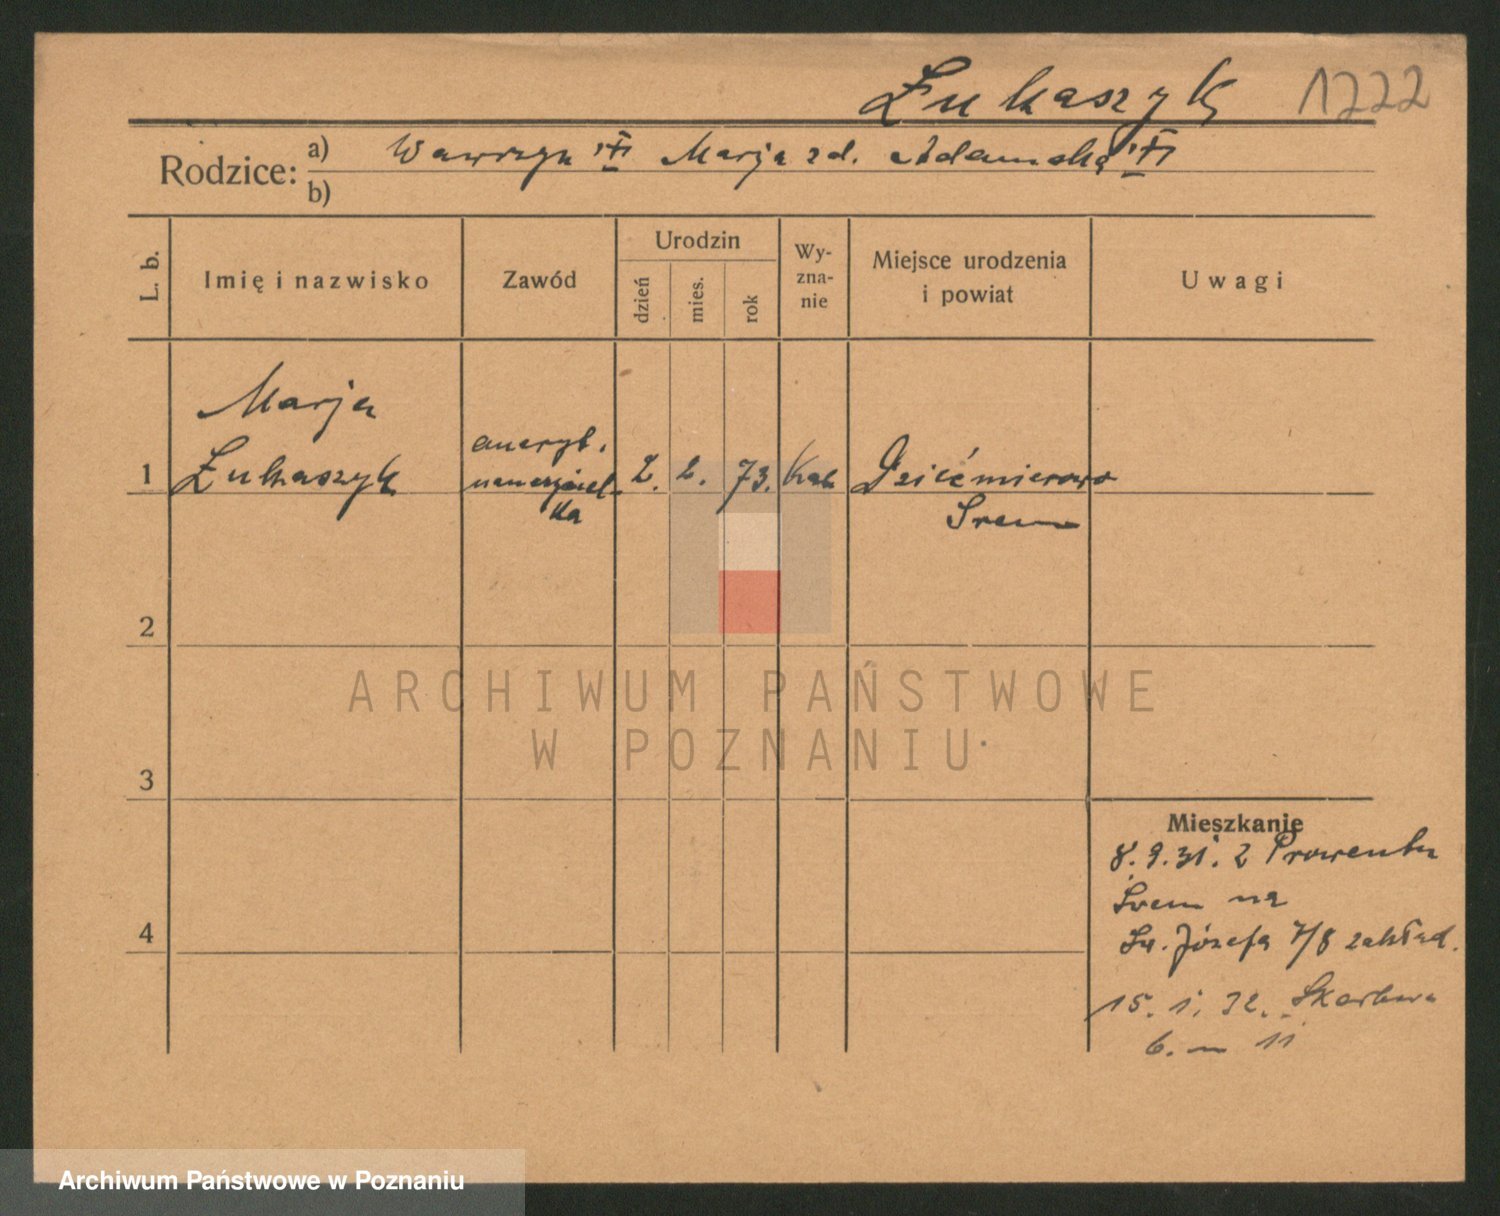 Łukaszyk 1222
Rodzice: a) Wawrzyn Marja zd. Adamska
b)
L. b.
Imię i nazwisko
Zawód
Urodzin
dzień
mies.
rok
Wy-
zna-
nie
Miejsce urodzenia
i powiat
Uwagi
Marja
1 Łukaszyk
emeryt.
nauczyciel-
ka
2. 2. 73. Kat
Dziećmierowo
Śrem
2
3
4
Mieszkanie
8. 9. 31. z Prowentu
Śrem na
Św. Józefa 7/8 zakład.
15. 1. 32. Skarbowa
6. m 11
ARCHIWUM PAŃSTWOWE
W POZNANIU
Archiwum Państwowe w Poznaniu